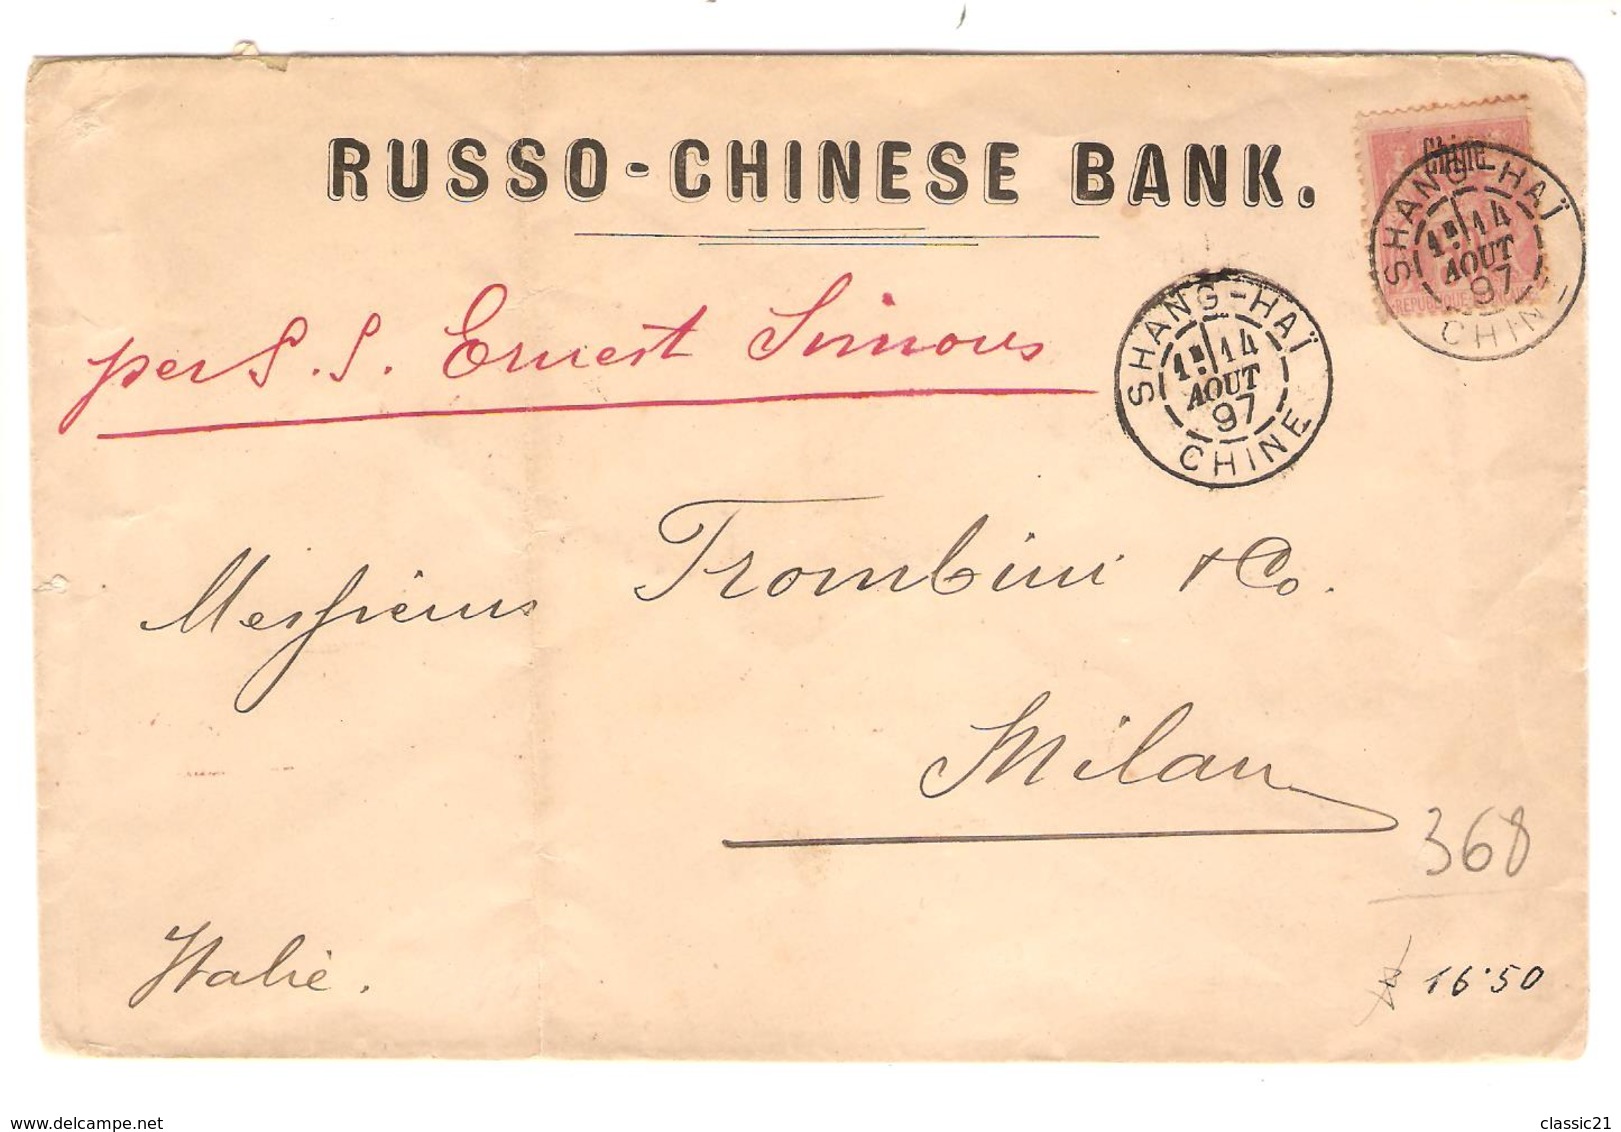 RUSSO-CHINESE BANK.
Chine
REPUBLIQUE FRANÇAISE
SHANG-HAÏ
1E 14
AOUT
97
CHINE
per S.S. Ernest Simons
SHANG-HAÏ
1E 14
AOUT
97
CHINE
Messieurs Trombini & Co.
Milan
368
Italie.
16.50
www.delcampe.net
classic21